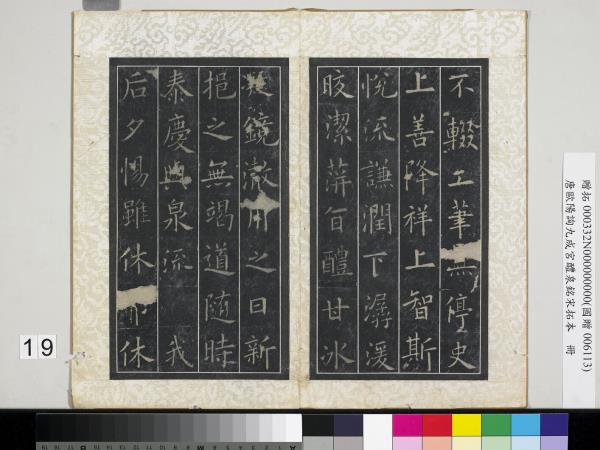 不輟工筆無停史
上善降祥上智斯
悅流謙潤下潺湲
晈潔蓱旨醴甘冰
凝鏡澈用之日新
挹之無竭道隨時
泰慶與泉流 我
后夕惕雖休弗休
贈拓 000332N000000000(國贈 006113)
唐歐陽詢九成宮醴泉銘宋拓本 冊
19